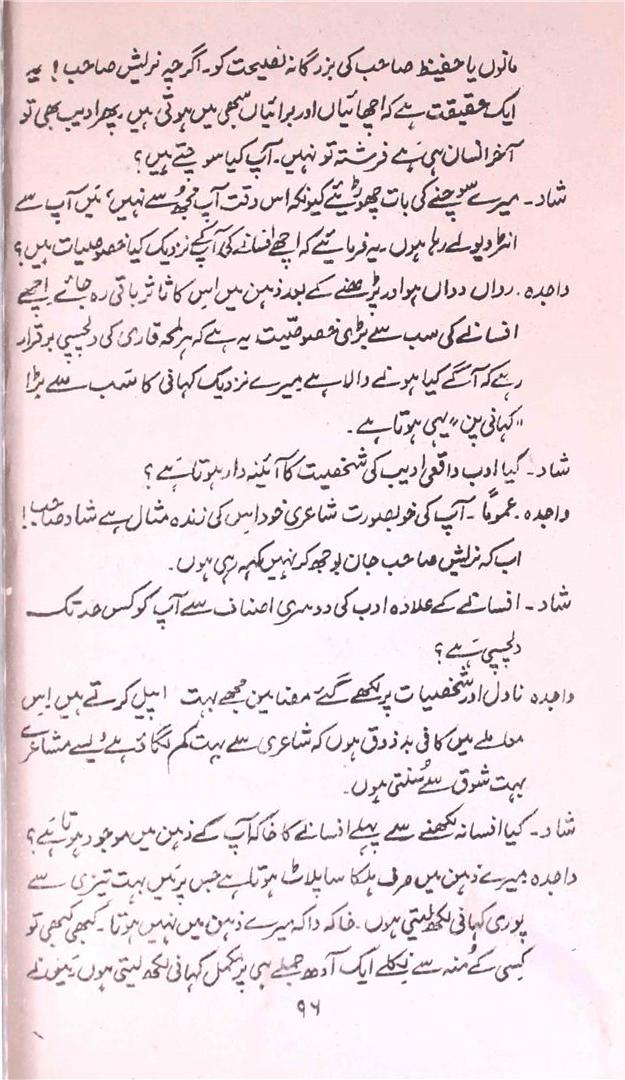 مانوں یا حفیظ صاحب کی بزرگانہ نصیحت کو۔ اگرچہ نریش صاحب! یہ
ایک حقیقت ہے کہ اچھائیاں اور برائیاں سبھی میں ہوتی ہیں۔ پھر ادیب بھی تو
آخر انسان ہی ہے فرشتہ تو نہیں۔ آپ کیا سوچتے ہیں؟
شاد۔ میرے سوچنے کی بات چھوڑیئے کیونکہ اس وقت آپ مجھ سے نہیں، میں آپ سے
انٹرویو لے رہا ہوں۔ یہ فرمائیے کہ اچھے افسانے کی آپ کے نزدیک کیا خصوصیات ہیں؟
واجدہ۔ رواں دواں ہو اور پڑھنے کے بعد ذہن میں اس کا تاثر باقی رہ جائے۔ اچھے
افسانے کی سب سے بڑی خصوصیت یہ ہے کہ ہر لمحہ قاری کی دلچسپی برقرار
رہے کہ آگے کیا ہونے والا ہے میرے نزدیک کہانی کا سب سے بڑا
"کہانی پن" یہی ہوتا ہے۔
شاد۔ کیا ادب واقعی ادیب کی شخصیت کا آئینہ دار ہوتا ہے؟
واجدہ۔ عموماً۔ آپ کی خوبصورت شاعری خود اس کی زندہ مثال ہے شاد صاحب!
اب کہ نریش صاحب جان بوجھ کر نہیں کہہ رہی ہوں۔
شاد۔ افسانے کے علاوہ ادب کی دوسری اصناف سے آپ کو کس حد تک
دلچسپی ہے؟
واجدہ ناول اور شخصیات پر لکھے گئے مضامین مجھے بہت اپیل کرتے ہیں اس
معاملے میں کافی بد ذوق ہوں کہ شاعری سے بہت کم لگاؤ ہے ویسے مشاعرے
بہت شوق سے سُنتی ہوں۔
شاد۔ کیا افسانہ لکھنے سے پہلے افسانے کا خاکہ آپ کے ذہن میں موجود ہوتا ہے؟
واجدہ میرے ذہن میں صرف ہلکا سا پلاٹ ہوتا ہے جس پر میں بہت تیزی سے
پوری کہانی لکھ لیتی ہوں۔ خاکہ واکہ میرے ذہن میں نہیں ہوتا۔ کبھی کبھی تو
کسی کے مُنہ سے نکلے ایک آدھ جملے ہی پر مکمل کہانی لکھ لیتی ہوں۔ میں نے
۹۶